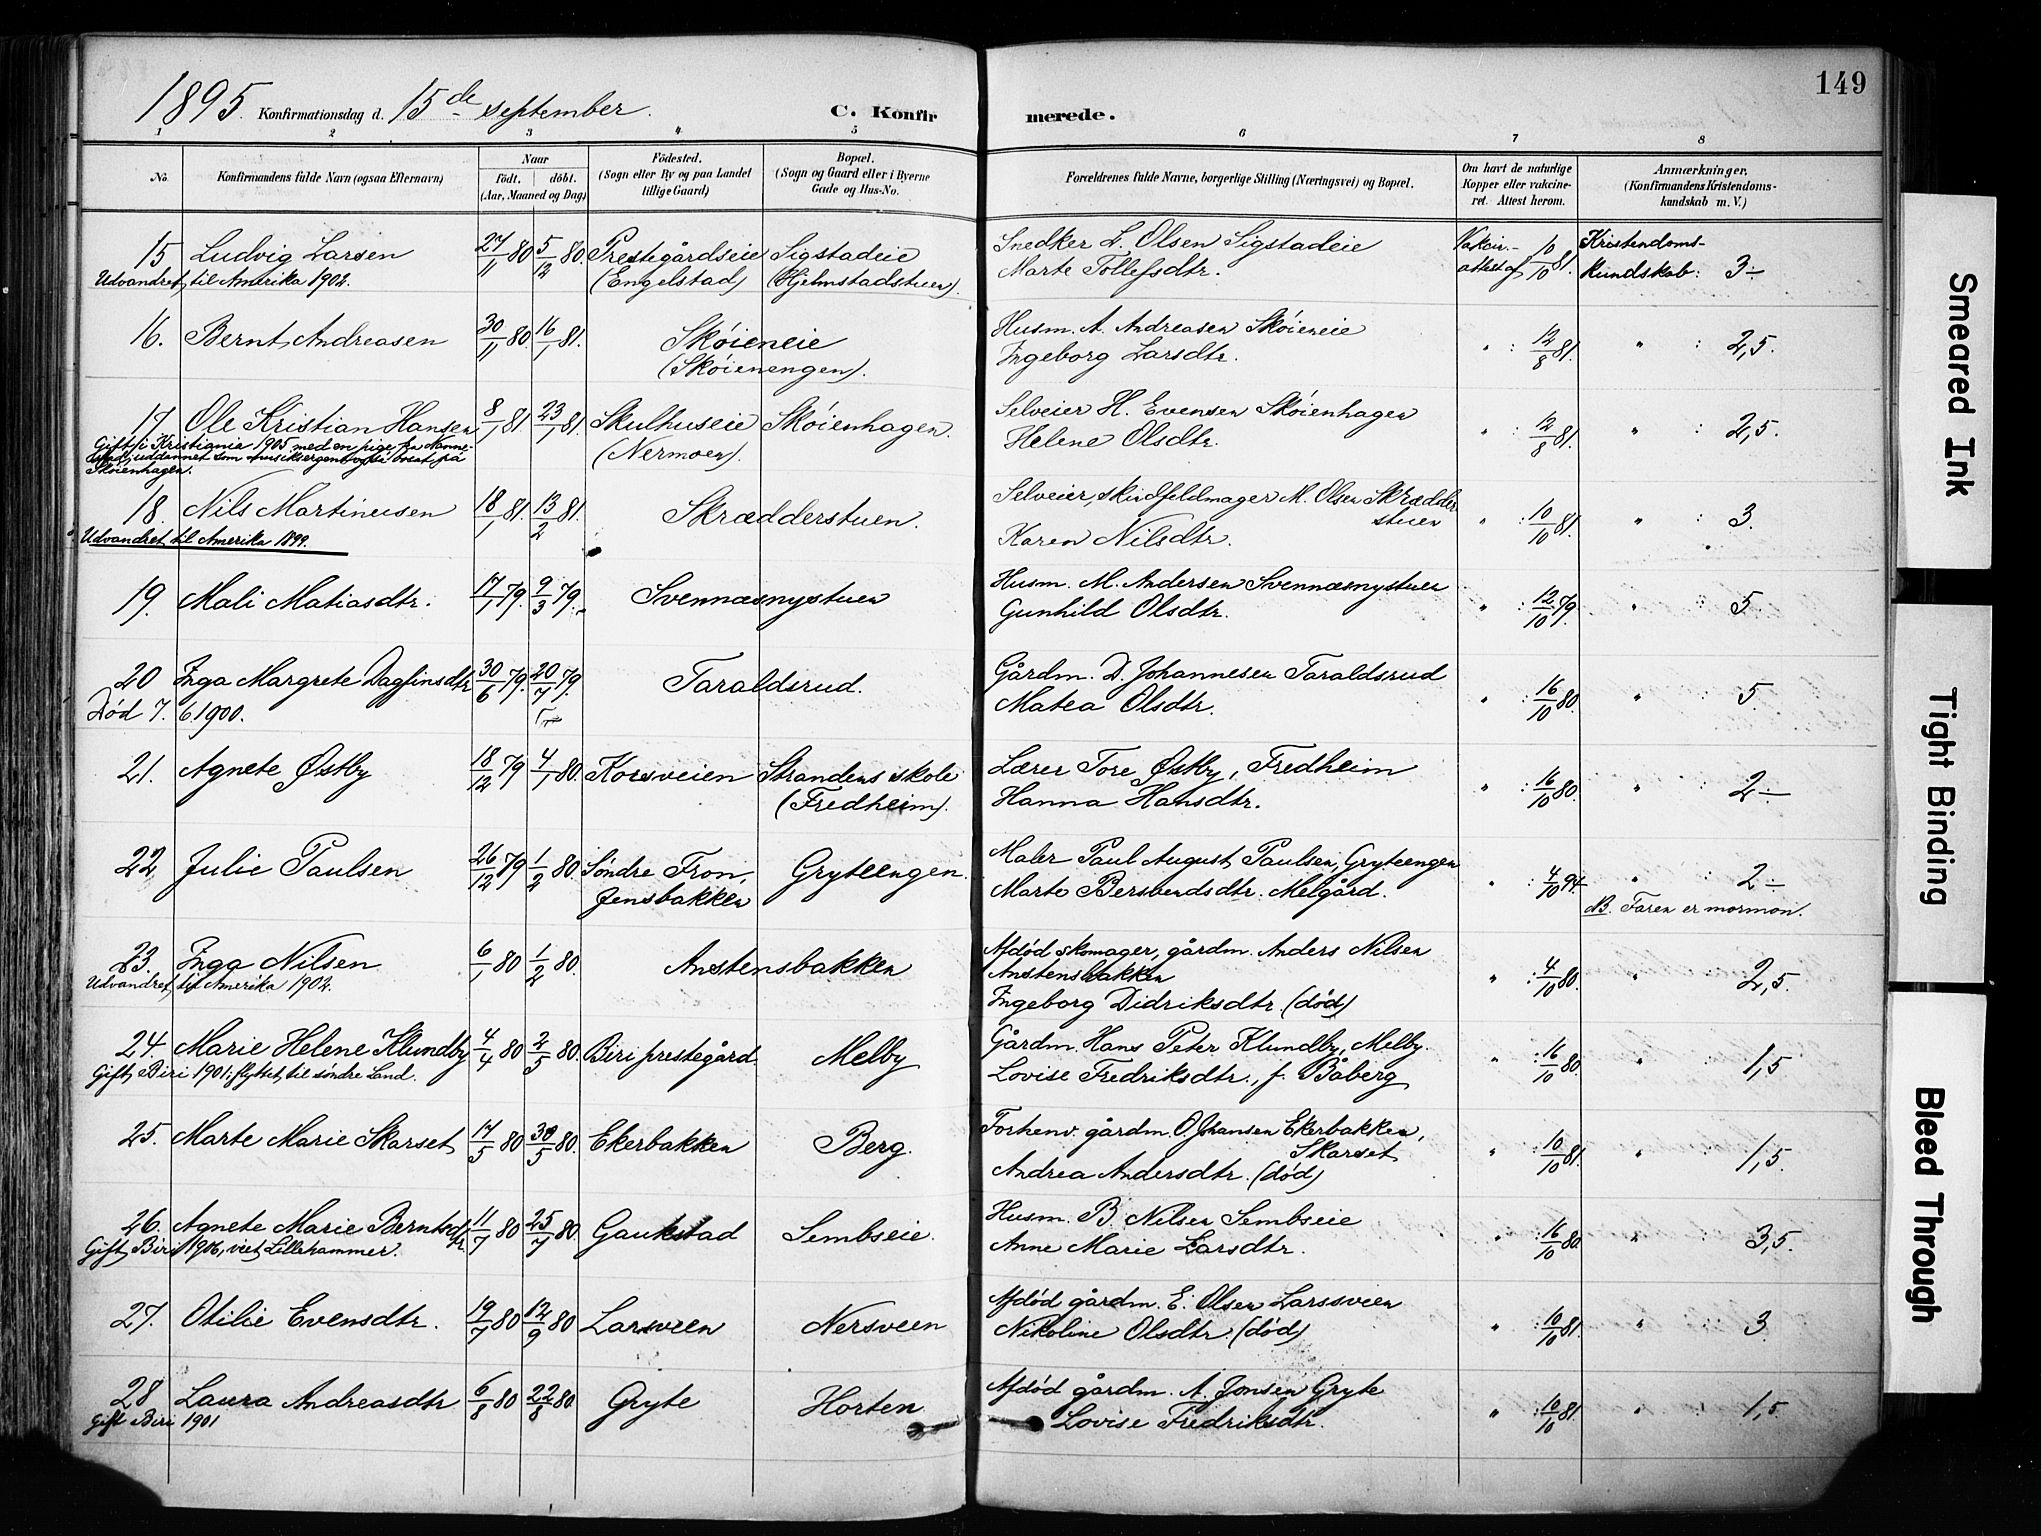 1895. Konfirmationsdag d. 15de september. C. Konfirmerede. 149
1 2 3 4 5 6 7 8
No. | Konfirmandens fulde Navn (ogsaa Efternavn) | Naar født. døbt. (Aar, Maaned og Dag) | Fødested. (Sogn eller By og paa Landet tillige Gaard) | Bopæl. (Sogn og Gaard eller i Byerne Gade og Hus-No. | Forældrenes fulde Navne, borgerlige Stilling (Næringsvei) og Bopæl. | Om havt de naturlige Kopper eller vakcineret. Attest herom. | Anmærkninger. (Konfirmandens Kristendomskundskab m. V.)
15 Ludvig Larsen 27/11 80 5/12 80. Prestegårdseie Sigstadeie Snedker L. Olsen Sigstadeie Vakcin.- 10/10 81. Kristendoms-
Udvandret til Amerika 1902. (Engelstad) (Hjelmstadstuen). Marte Tollefsdtr. attest af kundskab: 3 ÷
16. Bernt Andreasen 30/11 80. 16/1 81. Skøieneie Husm. A. Andreasen Skøieneie " : 12/8 81. " : 2,5.
(Skøienengen). Ingeborg Larsdtr.
17 Ole Kristian Hansen 8/1 81. 23/1 81. Skulhuseie Skøienhagen. Selveier H. Evensen Skøienhagen " : 12/8 81. " : 2,5.
Gift i Kristiania 1905 med en pige fra Nannestad; uddannet som musiksergent og bosat på
Skøienhagen. (Nermoen). Helene Olsdtr.
18. Nils Martinusen 18/1 81. 13/2 81. Skrædderstuen. Selveier, skindfeldmager M. Olsen Skrædderstuen " : 10/10 81. " : 3.
Udvandret til Amerika 1899. Karen Nilsdtr.
19. Mali Matiasdtr. 17/1 79. 9/3 79. Svennæsnystuen Husm. M. Andersen Svennæsnystuen " : 12/10 79. " : 5.
Gunhild Olsdtr.
20 Inga Margrete Dagfinsdtr 30/6 79. 20/7 79. Taraldsrud. Gårdm. D. Johannesen Taraldsrud " : 16/10 80. " 5.
Død 7.6.1900. Matea Olsdtr.
21. Agnete Østby 18/12 79 4/1 80. Korsveien Strandens skole Lærer Tore Østby, Fredheim " : 16/10 80. " 2 ÷
(Fredheim). Hanna Hansdtr.
22 Julie Paulsen 26/12 79 1/2 80. Søndre Fron, Gryteengen. Maler Paul August Paulsen, Gryteengen " : 4/10 94. " : 2 ÷
Jensbakken Marte Bersvendsdtr. Melgård. NB. Faren er mormon.
23. Inga Nilsen 6/1 80 1/2 80. Anstensbakken Afdød skomager, gårdm. Anders Nilsen
Udvandret til Amerika 1902. Anstensbakken " : 4/10 80. " : 2,5.
Ingeborg Didriksdtr. (død)
24. Marie Helene Klundby 4/4 80 2/5 80. Biri prestegård Melby Gårdm. Hans Peter Klundby, Melby. " : 16/10 80. " : 1,5
Gift, Biri 1901; flyttet til søndre Land. Lovise Fredriksdtr., f. Båberg
25. Marte Marie Skarset 17/5 80 30/5 80. Ekerbakken Berg. Forhenv. gårdm. O. Johansen Ekerbakken, Skarset " 10/10 81. " : 1,5.
Andrea Andersdtr. (død)
26. Agnete Marie Berntsdtr. 11/7 80 25/7 80. Gaukstad Sembseie. Husm. B. Nilsen Sembseie " : 16/10 80. " : 3,5.
Gift, Biri 1906, viet Lillehammer. Anne Marie Larsdtr.
27. Otilie Evensdtr. 19/7 80 12/9 80 Larsveen Nersveen Afdød gårdm. E. Olsen Larssveen " : 10/10 81. " : 3
Nikoline Olsdtr. (død)
28 Laura Andreasdtr 6/8 80 22/8 80. Gryte Horten Afdød gårdm. A. Jonsen Gryte " : 10/10 81. " : 1,5
Gift Biri 1901 Lovise Fredriksdtr.
Smeared Ink
Tight Binding
Bleed Through